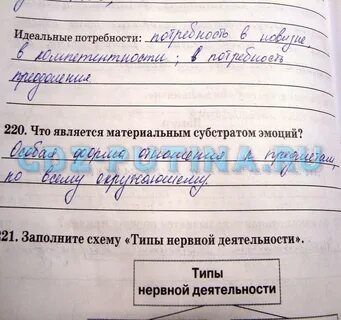 Идеальные потребности: потребность в новизне,
в компетентности; в потребность
преодоления
220. Что является материальным субстратом эмоций?
Особая форма отношения к предметам,
ко всему окружающему.
GDZ-PUTINA.RU
221. Заполните схему «Типы нервной деятельности».
Типы
нервной деятельности